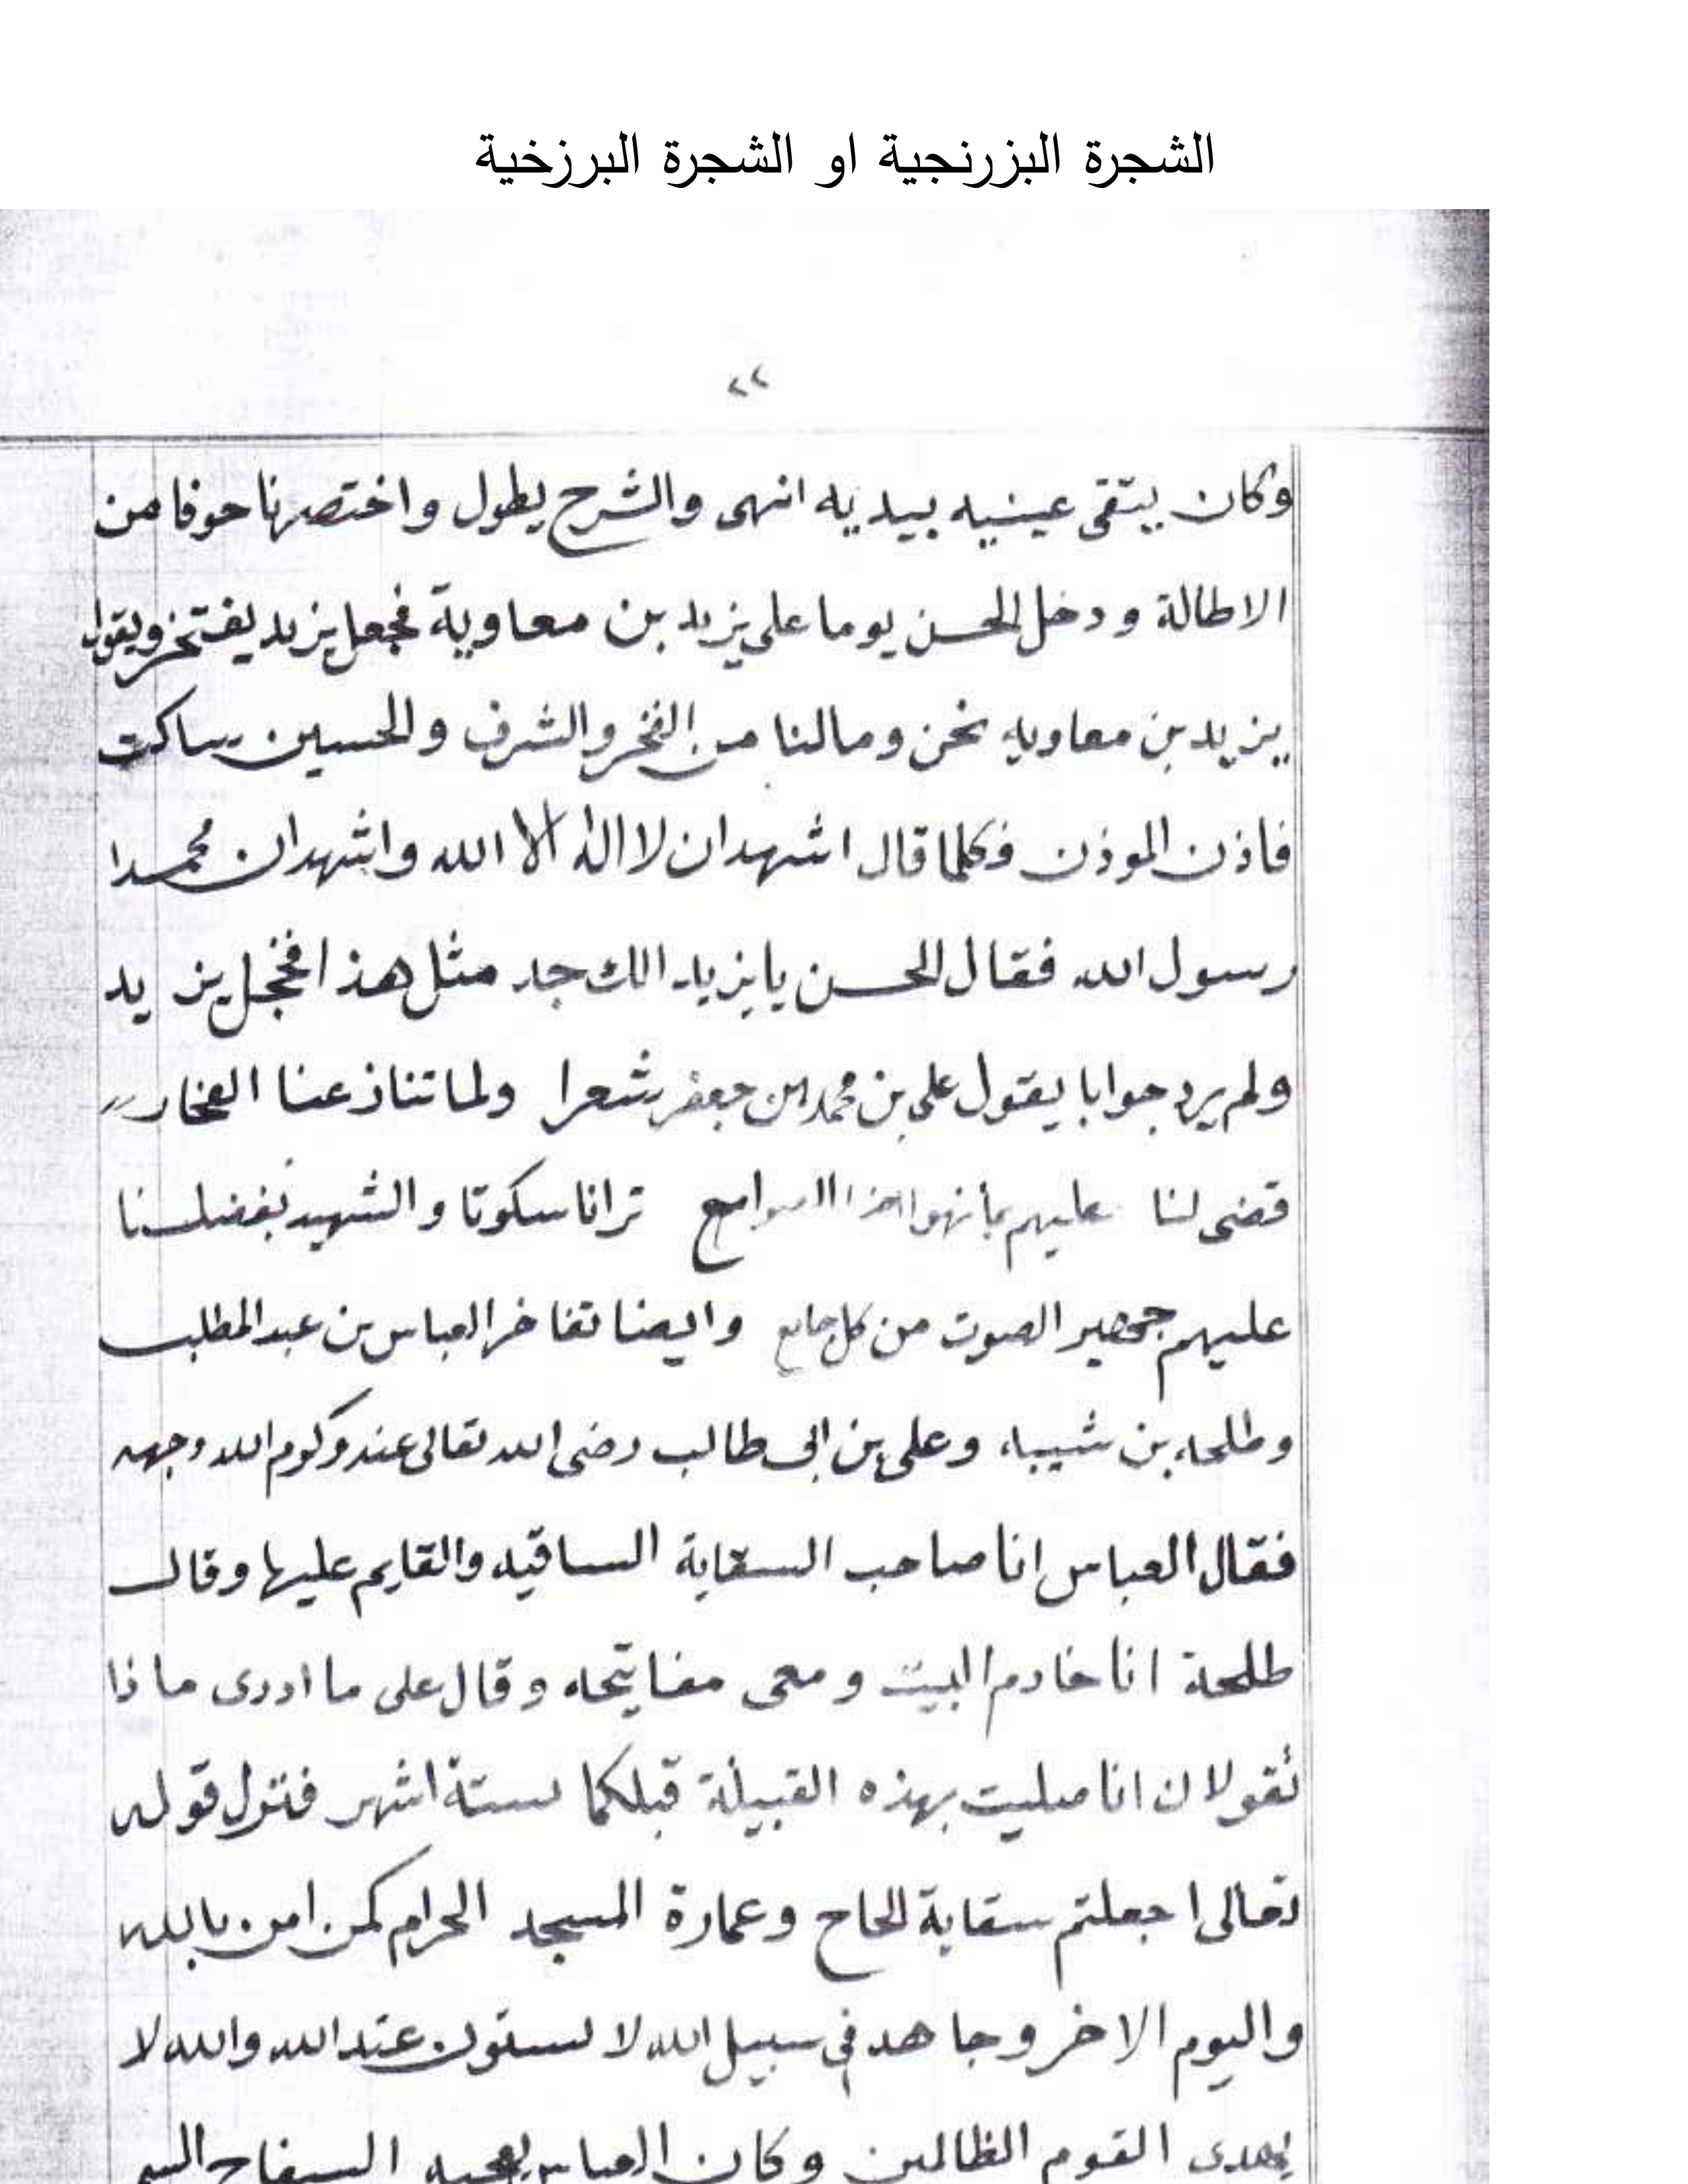 الشجرة البزرنجية او الشجرة البرزخية
٢٢
وكان يتقى عينيه بيديه انهى والشرح يطول واختصرنا خوفا من
الاطالة ودخل الحسن يوما على يزيد بن معاوية فجعل يزيد يفتخر ويقول
يزيد بن معاويه نحن ومالنا من الفخر والشرف والحسين ساكت
فاذن الموذن وكلما قال اشهد ان لا اله الا الله واشهد ان محمدا
رسول الله فقال الحسن يا يزيد الك جد مثل هذا فخجل يزيد
ولم يرد جوابا يقول على بن محمد بن جعفر شعرا ولما تناذعنا الفخار
قضى لنا عليهم ترانا سكوتا والشهيد بفضلنا
عليهم جهير الصوت من كل جامع وايضا تفاخر العباس بن عبد المطلب
وطلحه بن شيبه وعلى بن ابى طالب رضى الله تعالى عنه وكرم الله وجهه
فقال العباس انا صاحب السقاية الساقيه والقايم عليها وقال
طلحة انا خادم البيت ومعى مفاتيحه وقال على ما ادرى ماذا
تقولان انا صليت بهذه القبيلة قبلكما بستة اشهر فنزل قوله
تعالى اجعلتم سقاية الحاج وعمارة المسجد الحرام كمن امن بالله
واليوم الاخر وجاهد فى سبيل الله لا يستون عند الله والله لا
يهدى القوم الظالمين وكان العباس السفاح